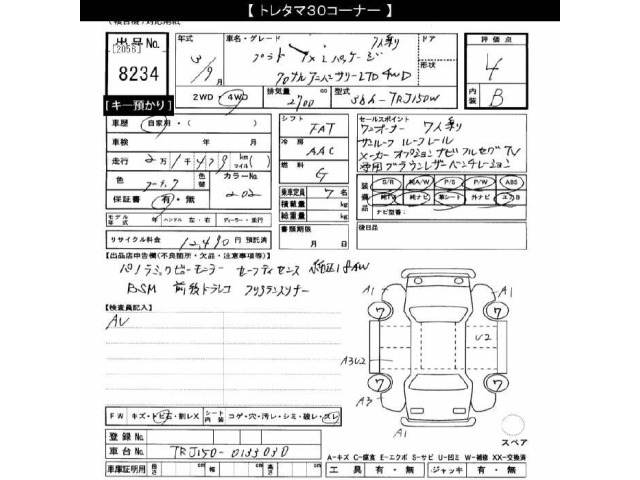 【 トレタマ30コーナー 】
(複合機)対応用紙
出品番号No. [2056] 8234
[キー預かり]
年式 3/9月
車名・グレード プラド TX Lパッケージ 7人乗り
70thアニバーサリーLTD 4WD
ドア 形状
評価点 4
内装 B
2WD・4WD
排気量 2700 cc
型式 3BA-TRJ150W
車歴 自家用・( )
車検 年 月
走行 2万1千479 (km マイル)
色 ブラック 色替 カラーNo. 202
保証書 有・無
モデル年式 年 ハンドル 左・右 ディーラー・並行
リサイクル料金 12,490円 預託済
シフト FAT
冷房 AAC
燃料 G
乗車定員 7 名
積載量 kg
総重量 kg
書類期限 月 日
セールスポイント
ワンオーナー 7人乗り
サンルーフ ルーフレール
メーカーオプションナビ フルセグTV
専用ブラウンレザー ベンチレーション
装備品
S/R 純A/W P/S P/W ABS
純TV 純ナビ 革シート 外ナビ エアB
ナビ型番: 
後日品
【出品店申告欄(不良箇所・欠品・注意事項等)】
パノラミックビューモニター セーフティセンス 純正18AW
BSM 前後ドラレコ クリアランスソナー
【検査員記入】
AV
A1 A1
7 7
U2
A3U2
7 7
A3
A1
スペア
FW キズ・トビ石・割レX シート内装 コゲ・穴・汚レ・シミ・破レ・スレ
登録No.
車台No. TRJ150-0133030
車庫証明用 長さ cm 幅 cm 高さ cm
A-キズ C-腐食 E-エクボ S-サビ U-凹ミ W-補修 XX-交換済
工具 有・無 ジャッキ 有・無